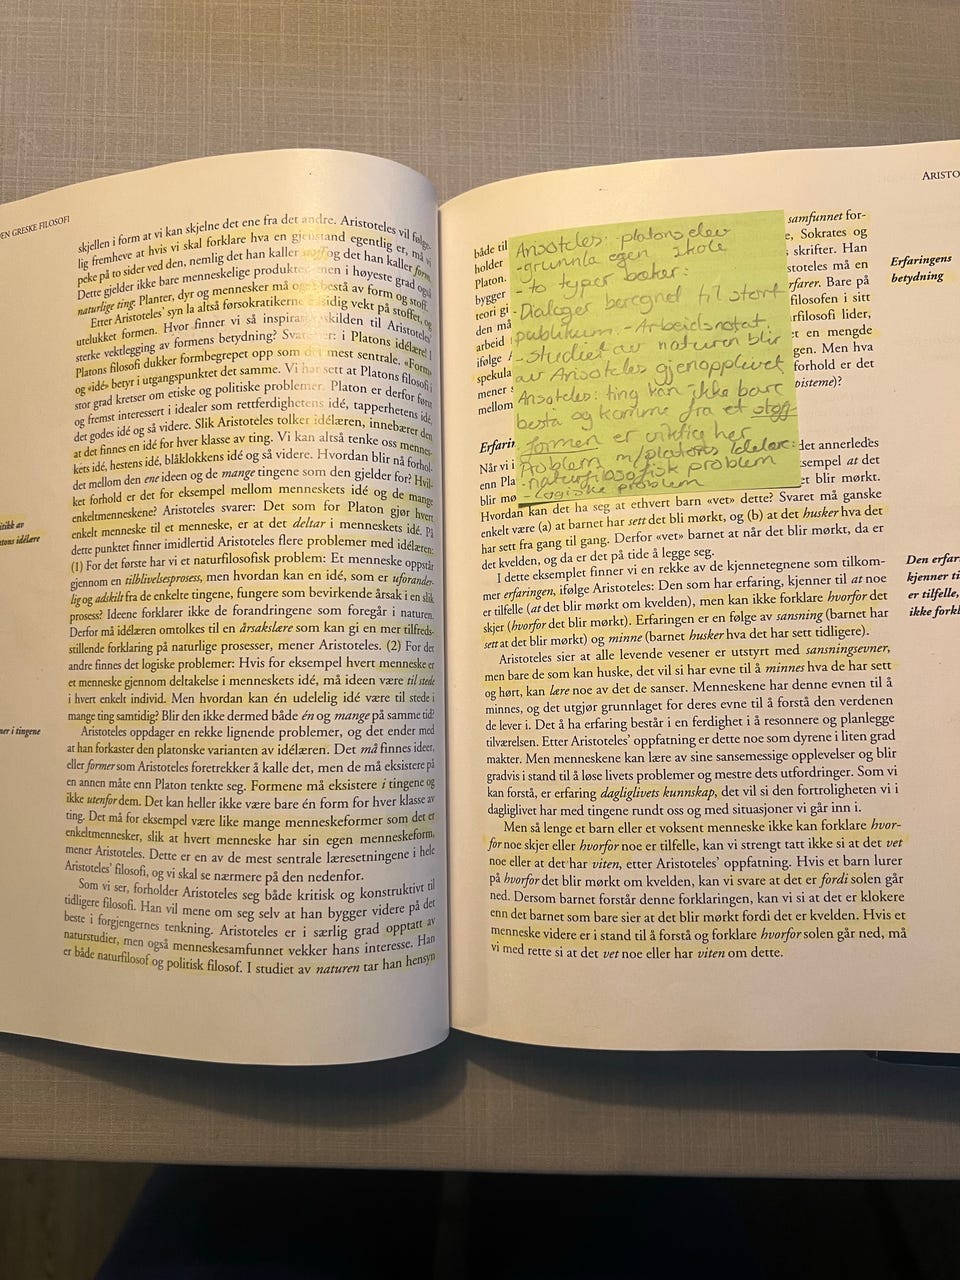 DEN GRESKE FILOSOFI
skjellen i form at vi kan skjelne det ene fra det andre. Aristoteles vil følge-
lig fremheve at hvis vi skal forklare hva en gjenstand egentlig er, må vi
peke på to sider ved den, nemlig det han kaller stoff og det han kaller form.
Dette gjelder ikke bare menneskelige produkter, men i høyeste grad også
naturlige ting. Planter, dyr og mennesker må også bestå av form og stoff.
Etter Aristoteles' syn la altså førsokratikerne ensidig vekt på stoffet, og
utelukket formen. Hvor finner vi så inspirasjonskilden til Aristoteles'
sterke vektlegging av formens betydning? Svaret er: i Platons idélære! I
Platons filosofi dukker formbegrepet opp som det mest sentrale. «Form»
og «idé» betyr i utgangspunktet det samme. Vi har sett at Platons filosofi i
stor grad kretser om etiske og politiske problemer. Platon er derfor først
og fremst interessert i idealer som rettferdighetens idé, tapperhetens idé,
det godes idé og så videre. Slik Aristoteles tolker idélæren, innebærer den
at det finnes en idé for hver klasse av ting. Vi kan altså tenke oss mennes-
kets idé, hestens idé, blåklokkens idé og så videre. Hvordan blir nå forhol-
det mellom den ene ideen og de mange tingene som den gjelder for? Hvil-
ket forhold er det for eksempel mellom menneskets idé og de mange
enkeltmenneskene? Aristoteles svarer: Det som for Platon gjør hvert
enkelt menneske til et menneske, er at det deltar i menneskets idé. På
dette punktet finner imidlertid Aristoteles flere problemer med idélæren:
(1) For det første har vi et naturfilosofisk problem: Et menneske oppstår
gjennom en tilblivelsesprosess, men hvordan kan en idé, som er uforander-
lig og adskilt fra de enkelte tingene, fungere som bevirkende årsak i en slik
prosess? Ideene forklarer ikke de forandringene som foregår i naturen.
Derfor må idélæren omtolkes til en årsakslære som kan gi en mer tilfreds-
stillende forklaring på naturlige prosesser, mener Aristoteles. (2) For det
andre finnes det logiske problemer: Hvis for eksempel hvert menneske er
et menneske gjennom deltakelse i menneskets idé, må ideen være til stede
i hvert enkelt individ. Men hvordan kan én udelelig idé være til stede i
mange ting samtidig? Blir den ikke dermed både én og mange på samme tid?
Aristoteles oppdager en rekke lignende problemer, og det ender med
at han forkaster den platonske varianten av idélæren. Det må finnes ideer,
eller former som Aristoteles foretrekker å kalle det, men de må eksistere på
en annen måte enn Platon tenkte seg. Formene må eksistere i tingene og
ikke utenfor dem. Det kan heller ikke være bare én form for hver klasse av
ting. Det må for eksempel være like mange menneskeformer som det er
enkeltmennesker, slik at hvert menneske har sin egen menneskeform,
mener Aristoteles. Dette er en av de mest sentrale læresetningene i hele
Aristoteles' filosofi, og vi skal se nærmere på den nedenfor.
Som vi ser, forholder Aristoteles seg både kritisk og konstruktivt til
tidligere filosofi. Han vil mene om seg selv at han bygger videre på det
beste i forgjengernes tenkning. Aristoteles er i særlig grad opptatt av
naturstudier, men også menneskesamfunnet vekker hans interesse. Han
er både naturfilosof og politisk filosof. I studiet av naturen tar han hensyn
itikk av
tons idélære
ner i tingene
ARISTO
både til samfunnet for-
holder e, Sokrates og
Platon. skrifter. Han
bygger stoteles må en
teori gi rfarer. Bare på
den må filosofen i sitt
arbeid rfilosofi lider,
ifølge A et en mengde
spekula gen. Men hva
mener s forhold er det
mellom pisteme)?
Aristoteles: -platons elev
-grunnla egen skole
- to typer bøker:
- Dialoger beregnet til stort
publikum. - Arbeidsnotat.
- studiet av naturen blir
av Aristoteles gjenopplivet
Aristoteles: ting kan ikke bare
bestå og komme fra et stoff
formen er viktig her
Problem m/platons idelære:
-naturfilosofisk problem
- logiske problem
Erfarin
Når vi i det annerledes
enn Pla sempel at det
blir mø et blir mørkt.
Hvordan kan det ha seg at ethvert barn «vet» dette? Svaret må ganske
enkelt være (a) at barnet har sett det bli mørkt, og (b) at det husker hva det
har sett fra gang til gang. Derfor «vet» barnet at når det blir mørkt, da er
det kvelden, og da er det på tide å legge seg.
I dette eksemplet finner vi en rekke av de kjennetegnene som tilkom-
mer erfaringen, ifølge Aristoteles: Den som har erfaring, kjenner til at noe
er tilfelle (at det blir mørkt om kvelden), men kan ikke forklare hvorfor det
skjer (hvorfor det blir mørkt). Erfaringen er en følge av sansning (barnet har
sett at det blir mørkt) og minne (barnet husker hva det har sett tidligere).
Aristoteles sier at alle levende vesener er utstyrt med sansningsevner,
men bare de som kan huske, det vil si har evne til å minnes hva de har sett
og hørt, kan lære noe av det de sanser. Menneskene har denne evnen til å
minnes, og det utgjør grunnlaget for deres evne til å forstå den verdenen
de lever i. Det å ha erfaring består i en ferdighet i å resonnere og planlegge
tilværelsen. Etter Aristoteles' oppfatning er dette noe som dyrene i liten grad
makter. Men menneskene kan lære av sine sansemessige opplevelser og blir
gradvis i stand til å løse livets problemer og mestre dets utfordringer. Som vi
kan forstå, er erfaring dagliglivets kunnskap, det vil si den fortroligheten vi i
dagliglivet har med tingene rundt oss og med situasjoner vi går inn i.
Men så lenge et barn eller et voksent menneske ikke kan forklare hvor-
for noe skjer eller hvorfor noe er tilfelle, kan vi strengt tatt ikke si at det vet
noe eller at det har viten, etter Aristoteles' oppfatning. Hvis et barn lurer
på hvorfor det blir mørkt om kvelden, kan vi svare at det er fordi solen går
ned. Dersom barnet forstår denne forklaringen, kan vi si at det er klokere
enn det barnet som bare sier at det blir mørkt fordi det er kvelden. Hvis et
menneske videre er i stand til å forstå og forklare hvorfor solen går ned, må
vi med rette si at det vet noe eller har viten om dette.
Erfaringens
betydning
Den erfar
kjenner ti
er tilfelle,
ikke forkl